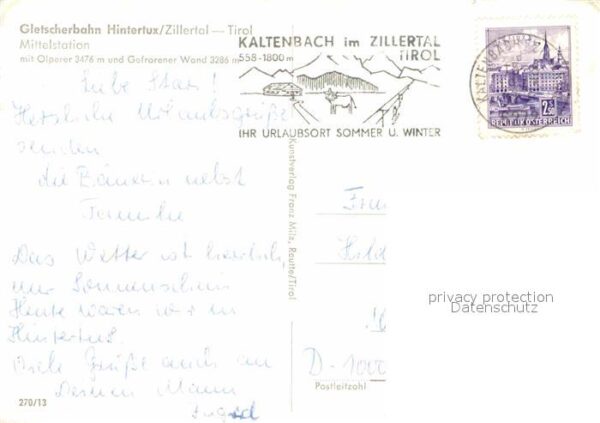 Gletscherbahn Hintertux/Zillertal — Tirol
Mittelstation
mit Olperer 3476 m und Gefrorener Wand 3286 m
KALTENBACH im ZILLERTAL
558-1800 m TIROL
IHR URLAUBSORT SOMMER U. WINTER
KALTENBACH
2.50
REPUBLIK ÖSTERREICH
Liebe
Herzliche Urlaubsgrüße
senden
die nebst
Familie
Das Wetter ist herrlich,
nur Sonnenschein
Heute waren wir in
Hintertux.
Viele Grüße auch an
Deinen Mann
Kunstverlag Franz Milz, Reutte/Tirol
D-1000
Postleitzahl
270/13
privacy protection
Datenschutz